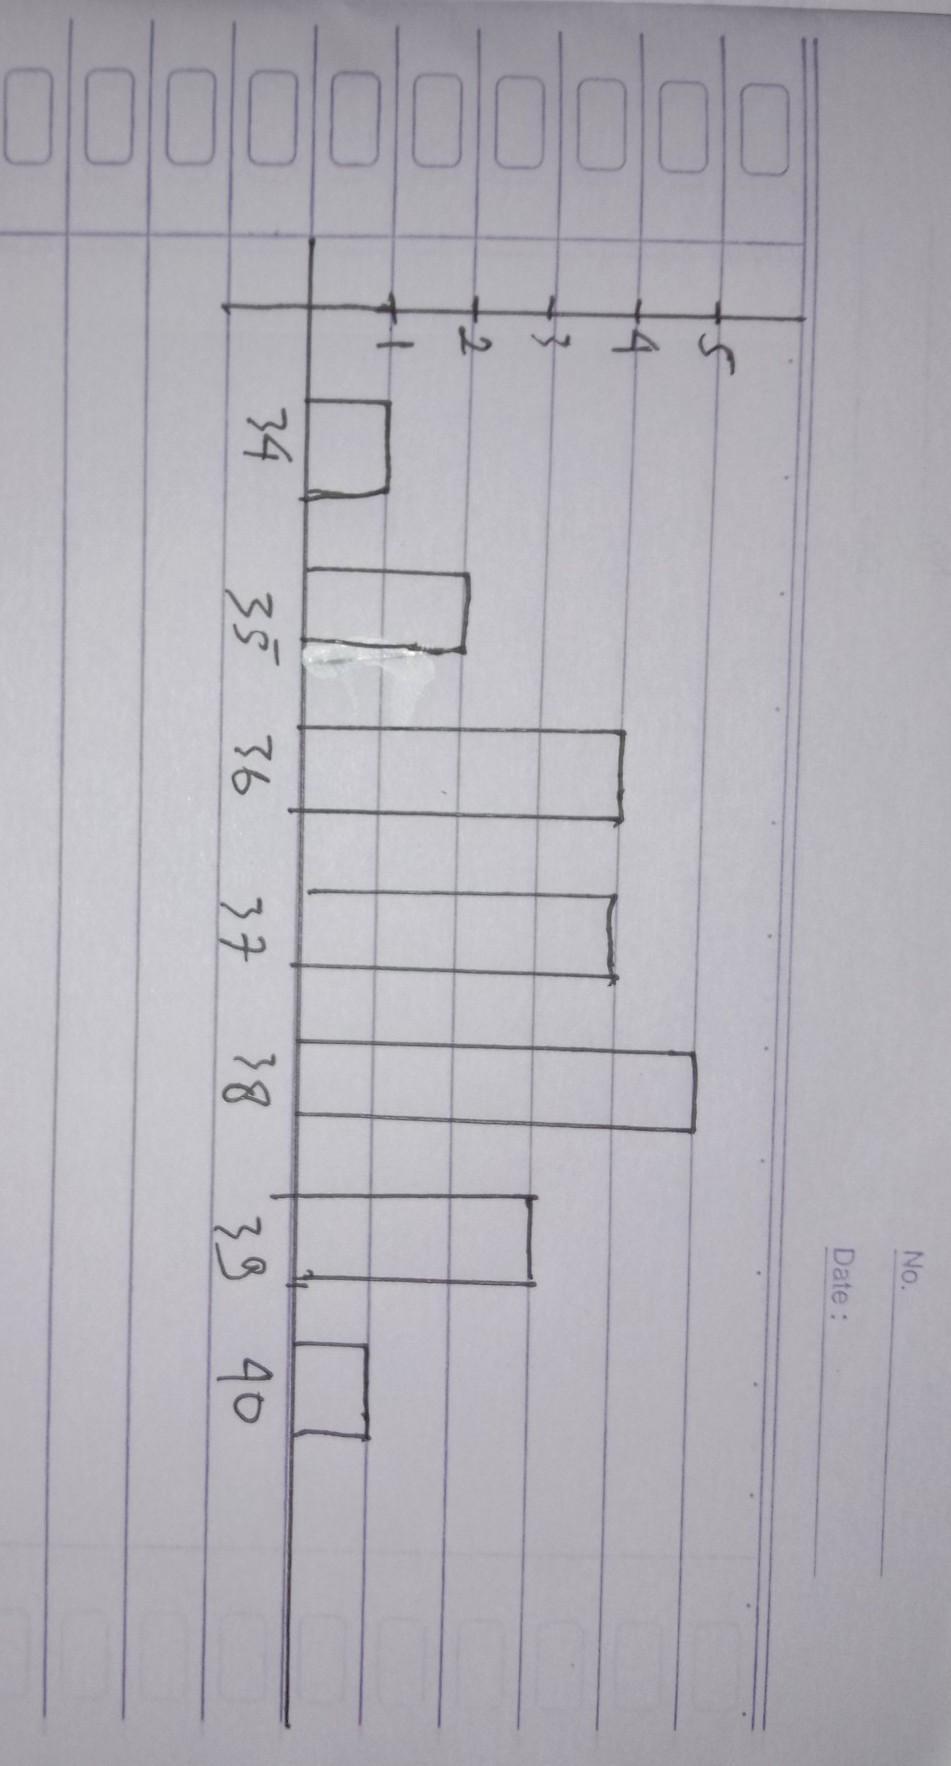 No.
Date :
5
4
3
2
1
34 35 36 37 38 39 40